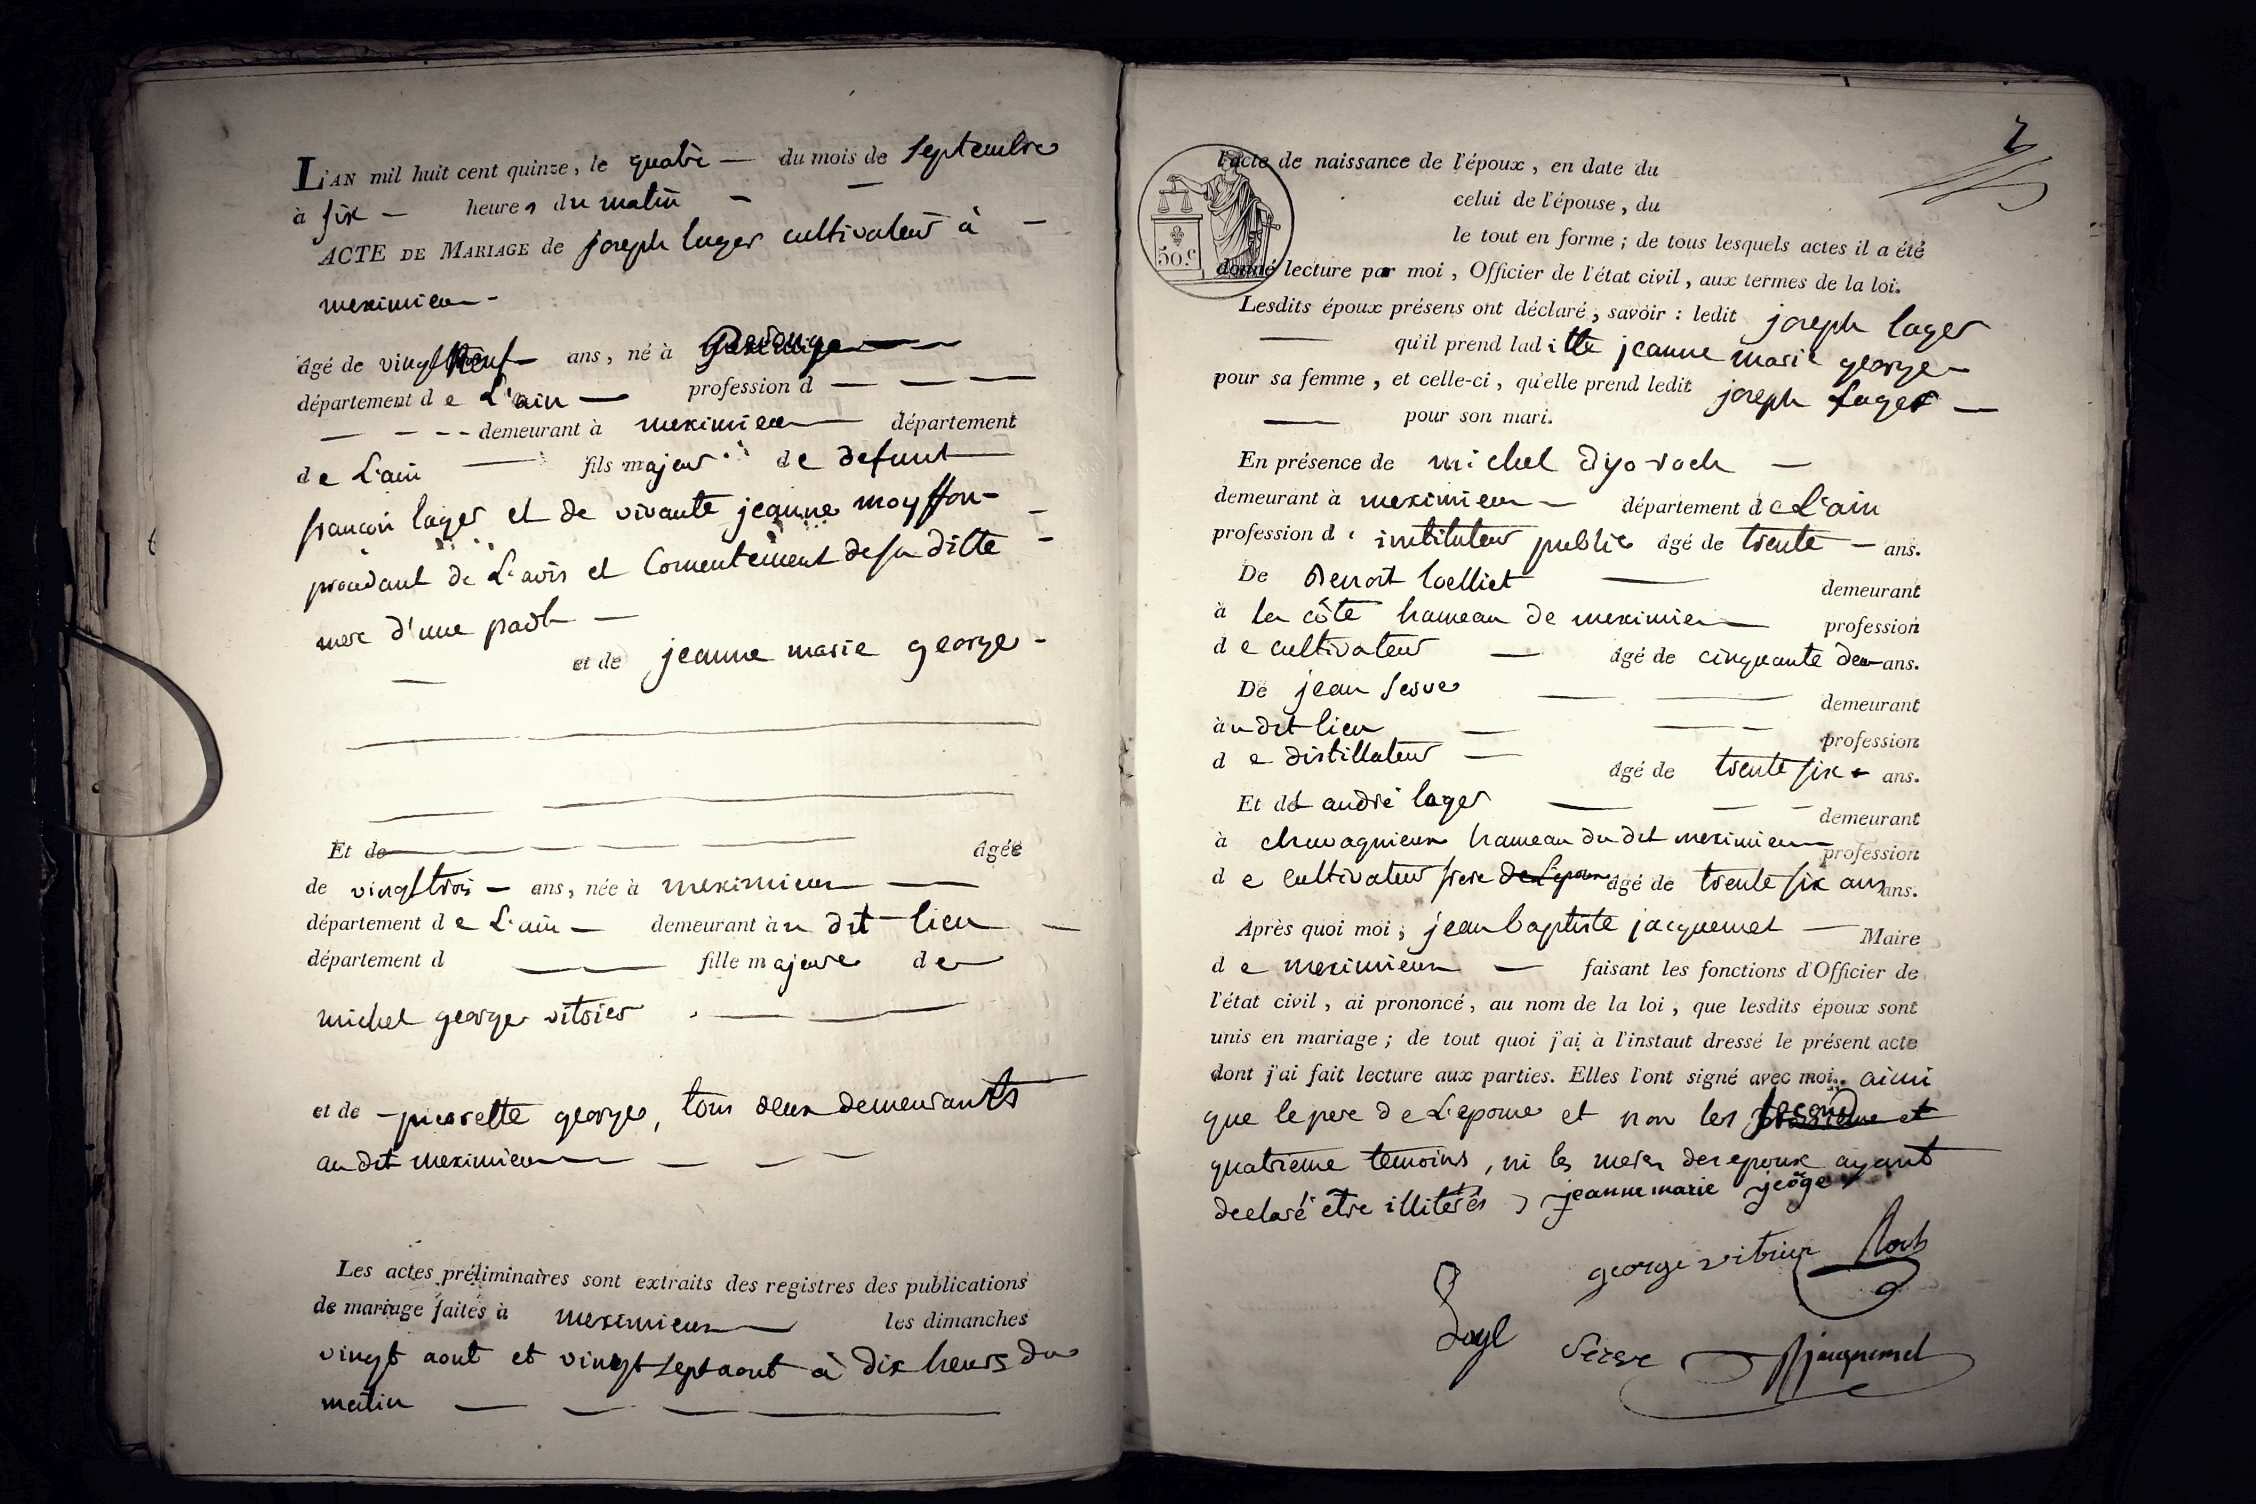 L'AN mil huit cent quinze, le quatre — du mois de septembre
à six — heures du matin — —
ACTE DE MARIAGE de joseph lager cultivateur à —
meximieu -
âgé de vingt neuf — ans, né à
département de L'ain — profession d — — —
— — - - demeurant à meximieu — département
de L'ain — fils majeur de defunt
francois lager et de vivante jeanne moyffon -
procédant de L'avis et Consentement de sa ditte -
mere d'une part —
— et de jeanne marie george -
Et de — — — — — âgée
de vingt trois — ans, née à meximieux —
département de L'ain — demeurant au dit lieu —
département d — — fille majeure de
michel george vitrier - — —
et de — pierrette george, tous deux demeurants
au dit meximieu — — — —
Les actes préliminaires sont extraits des registres des publications
de mariage faites à meximieux — les dimanches
vingt aout et vingt sept aout à dix heurs du
matin — — — —
2
l'acte de naissance de l'époux, en date du
celui de l'épouse, du
le tout en forme; de tous lesquels actes il a été
50 c
donné lecture par moi, Officier de l'état civil, aux termes de la loi.
Lesdits époux présens ont déclaré, savoir: ledit joseph lager
— qu'il prend laditte jeanne marie george —
pour sa femme, et celle-ci, qu'elle prend ledit joseph lager —
— pour son mari.
En présence de michel roch —
demeurant à meximieu — département de L'ain
profession d' instituteur public âgé de trente — ans.
De Benoit — demeurant
à la côte hameau de meximieu — profession
de cultivateur — âgé de cinquante deux ans.
De jean serve — — demeurant
au dit lieu — — — profession
de distillateur — âgé de trente six - ans.
Et de andré lager — — - demeurant
à chavagnieux hameau du dit meximieu — profession
de cultivateur frere de L'epoux âgé de trente six ans ans.
Après quoi moi, jean baptiste jacquemet — Maire
de meximieux — faisant les fonctions d'Officier de
l'état civil, ai prononcé, au nom de la loi, que lesdits époux sont
unis en mariage; de tout quoi j'ai à l'instaut dressé le présent acte
dont j'ai fait lecture aux parties. Elles l'ont signé avec moi. ainsi
que le pere de L'epouse et non les second et
quatrieme temoins, ni les meres des epoux ayant
declaré être illiterés, jeanne marie jeorge
george vitrier Roch
Serve Jacquemet